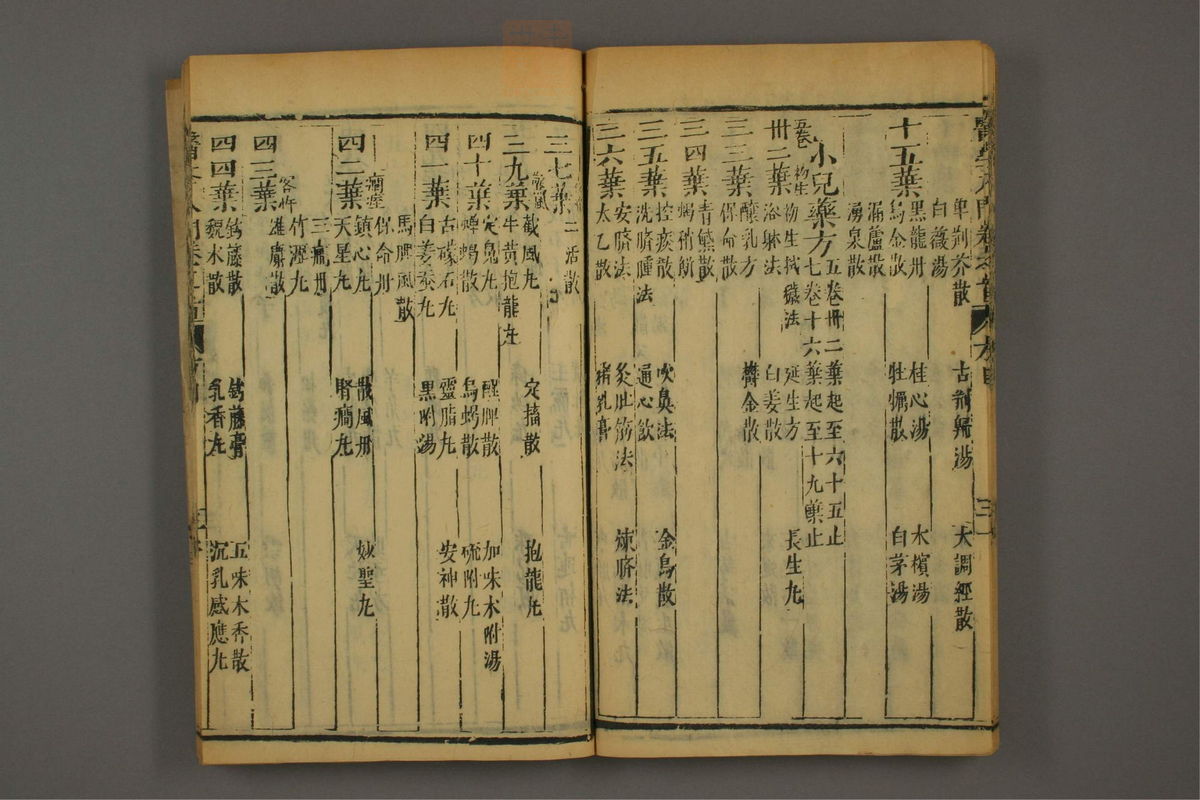 單荊芥散 古荊歸湯 大調經散
白薇湯
十五葉 黑龍丹 桂心湯 木檳湯
烏金散 牡礪散 白茅湯
漏蘆散
湧泉散
小兒藥方 五卷卅二葉起至六十五止
七卷十六葉起至十九葉止
五卷 初生
卅二葉 初生拭穢法 延生方 長生尢
浴躰法 白姜散
三三葉 釀乳方 欎金散
保命散
三四葉 青黛散
蝎稍餅
三五葉 控痰散 吹鼻法 金烏散
洗臍腫法 通心飲
三六葉 安臍法 灸肚筋法 炼臍法
太乙散 猪乳膏
三七葉 二活散
急風
三九葉 截風尢 定搐散 抱龍尢
牛黄抱龍尢
四十葉 定魄尢 醒脾散 加味木附湯
蟬蝎散 烏蝎散 硫附尢
四一葉 古礞石尢 靈脂尢 安神散
白姜蚕尢 黑附湯
馬脾風散
癎痓 保命丹
四二葉 鎮心尢 散風丹 妙聖尢
天星尢 腎癎尢
三癎丹
客忤 竹瀝尢
四三葉 雄麝散
四四葉 鈎藤散 鈎藤膏 五味木香散
魏木散 乳香尢 沉乳感應尢